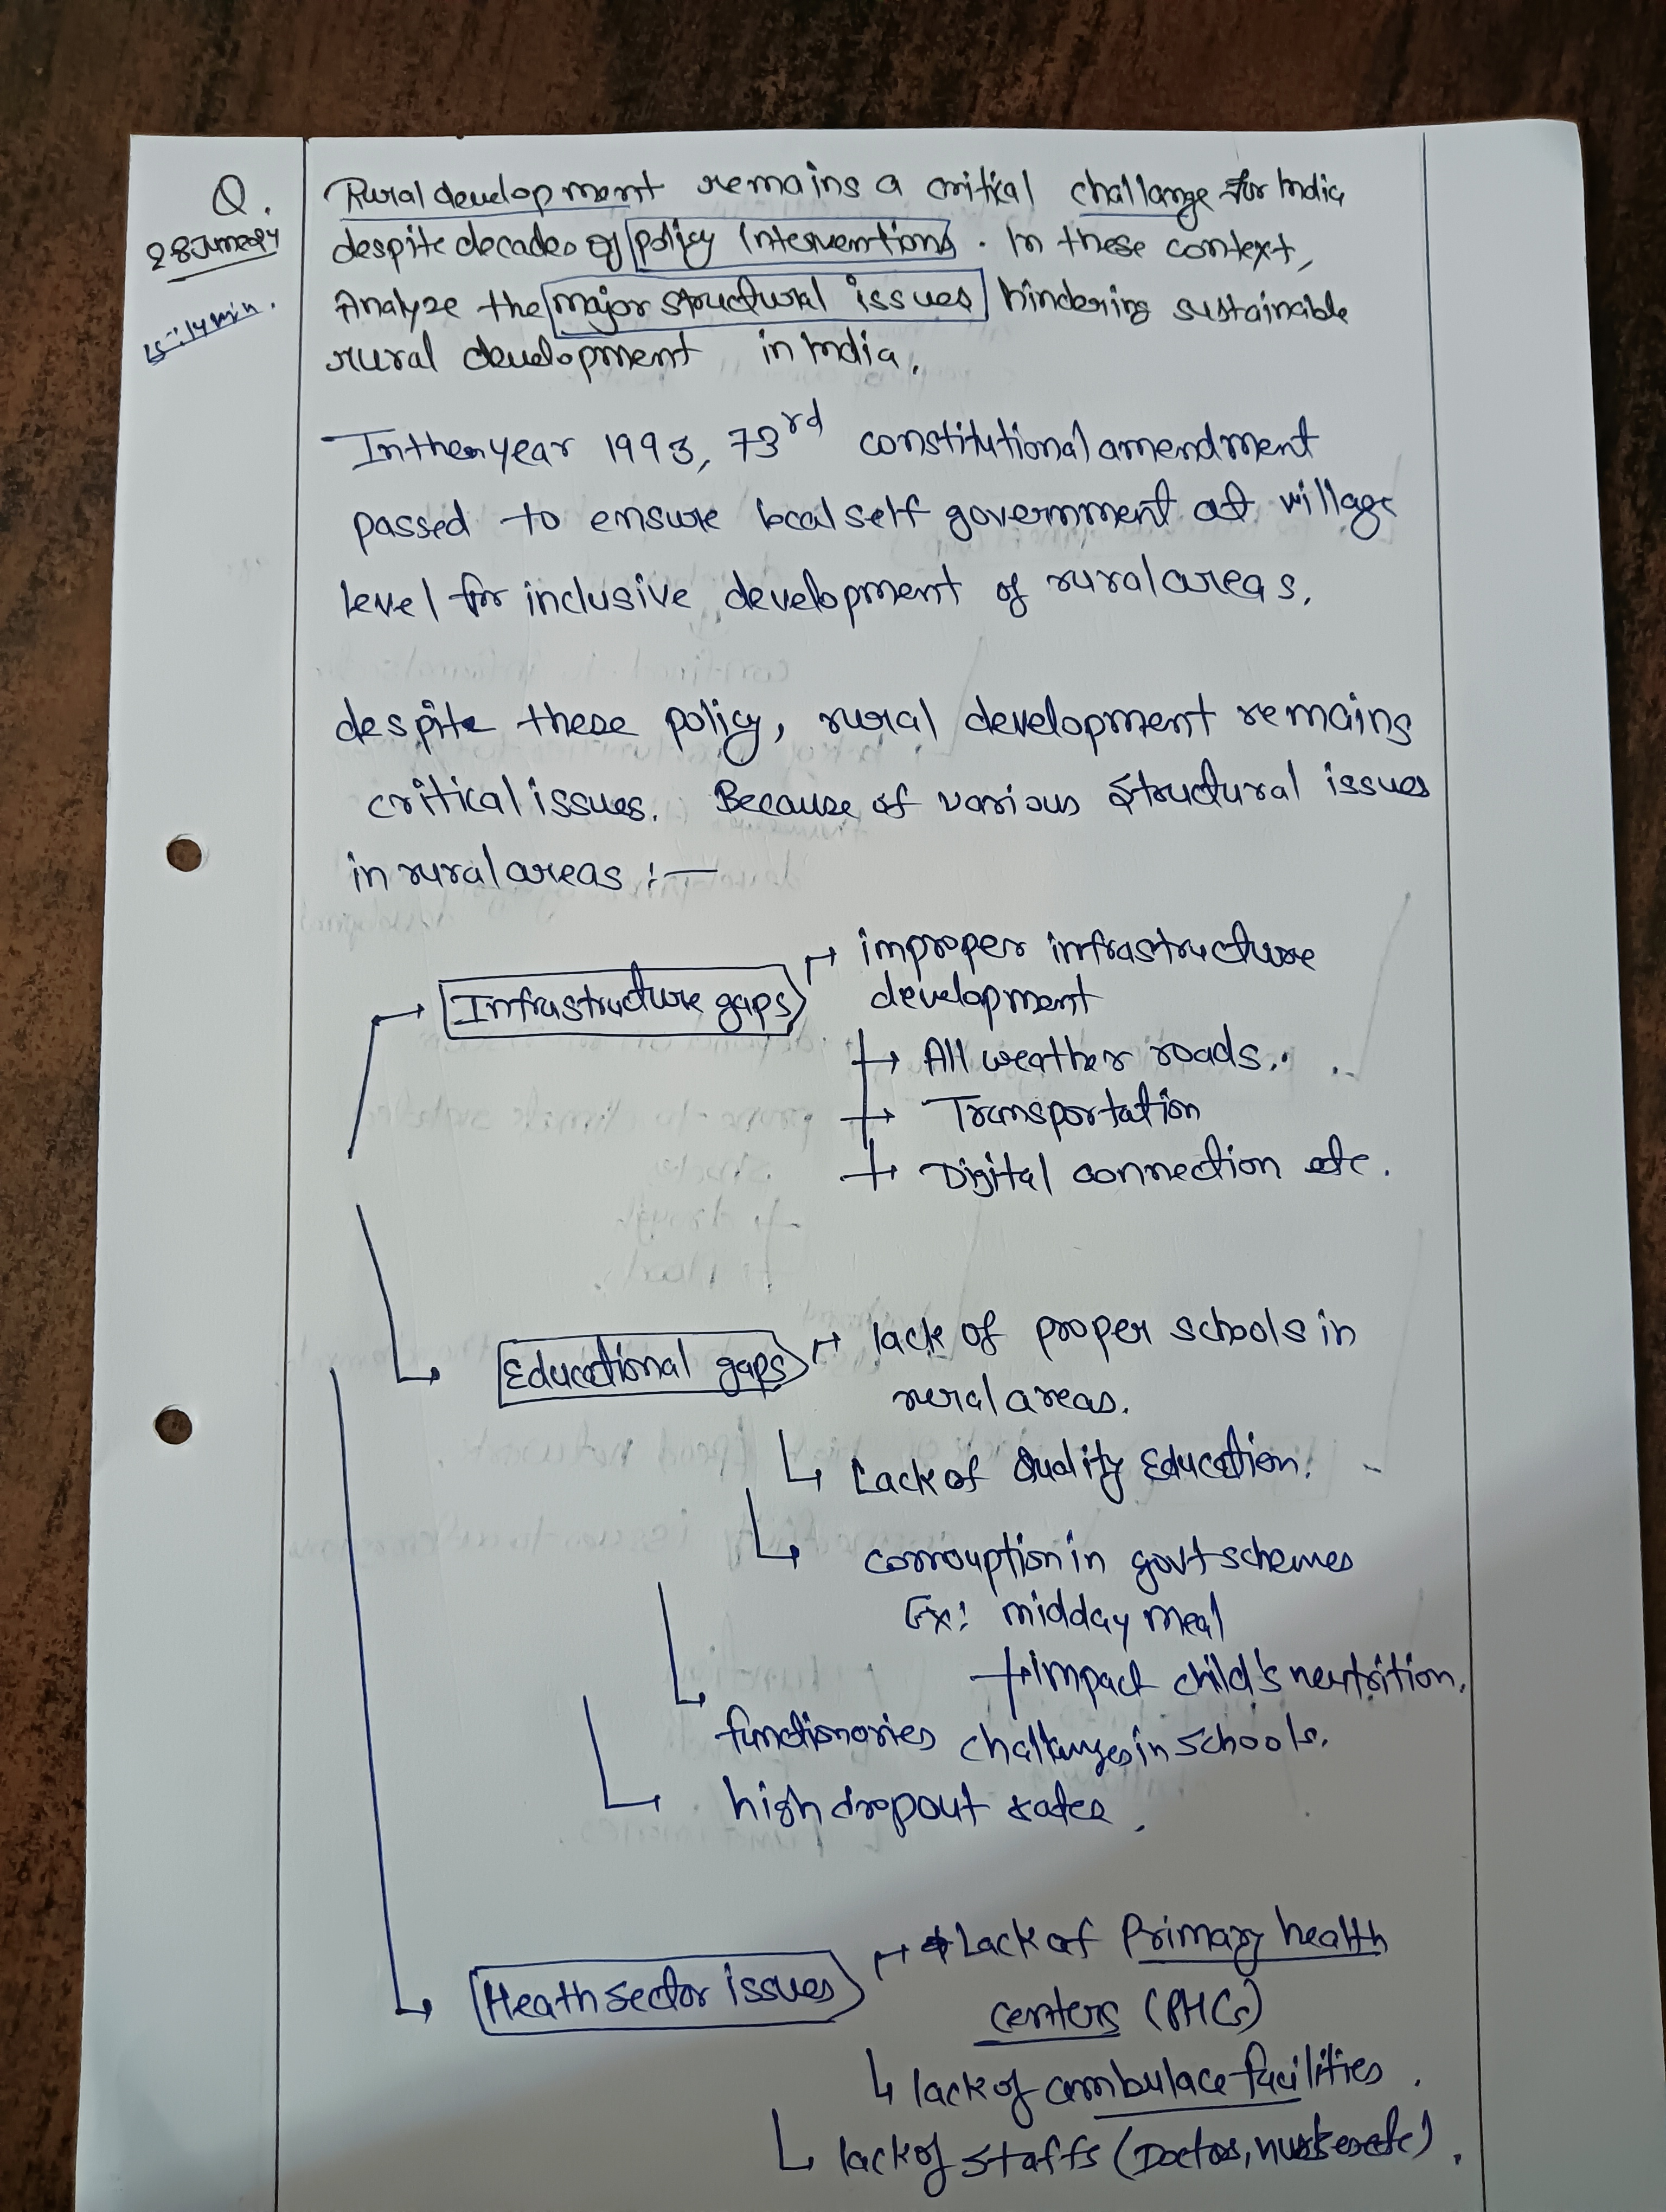 Q.
28 June 24
15:14 min.
Rural development remains a critical challange for India
despite decades of policy Interventions. In these context,
Analyze the major structural issues hindering sustainable
rural development in India.
In the year 1993, 73rd constitutional amendment
passed to ensure local self government at village
level for inclusive development of rural areas.
despite these policy, rural development remains
critical issues. Because of various structural issues
in rural areas :—
Infrastructure gaps → improper infrastructure
development
→ All weather roads.
→ Transportation
→ Digital connection etc.
Educational gaps → lack of proper schools in
rural areas.
↳ Lack of Quality Education.
↳ corruption in govt schemes
Ex: midday meal
→ impact child's neutrition.
functionories challanges in schools.
high dropout rates.
Heath sector issues → Lack of Primary health
centers (PHCs)
↳ lack of ambulace facilities.
↳ lack of staffs (Doctos, etc).